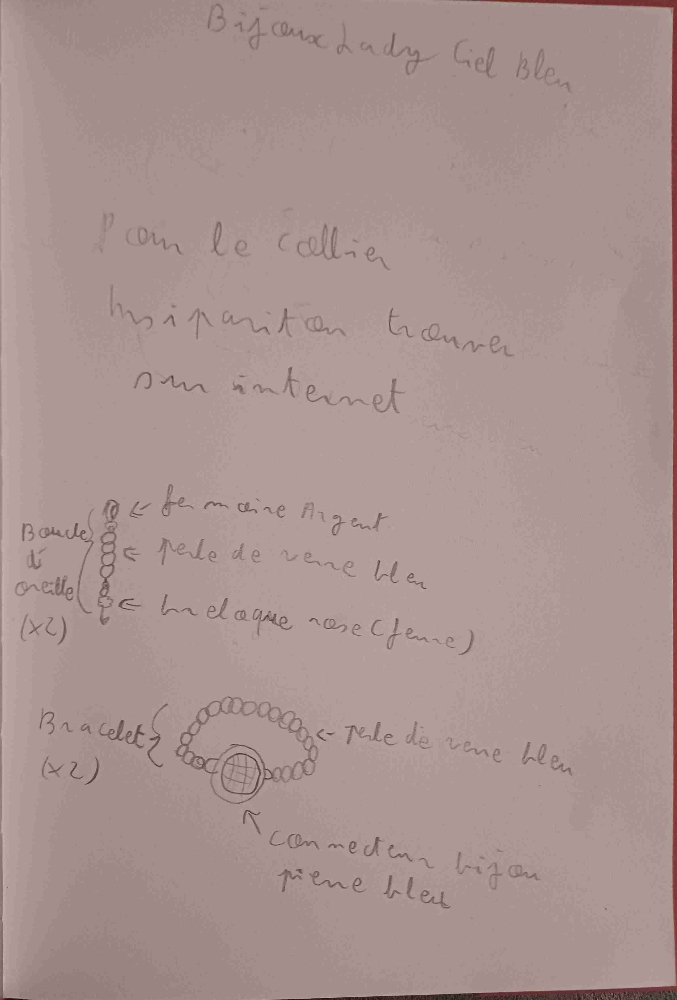 Bijoux Lady Ciel Bleu
Pour le collier
Insiparition trouver
sur internet
Boucle
d'
oreille
(x2)
← fermoire Argent
← perle de verre bleu
← breloque rose (ferme)
Bracelet
(x2)
← Perle de verre bleu
connecteur bijou
pierre bleu